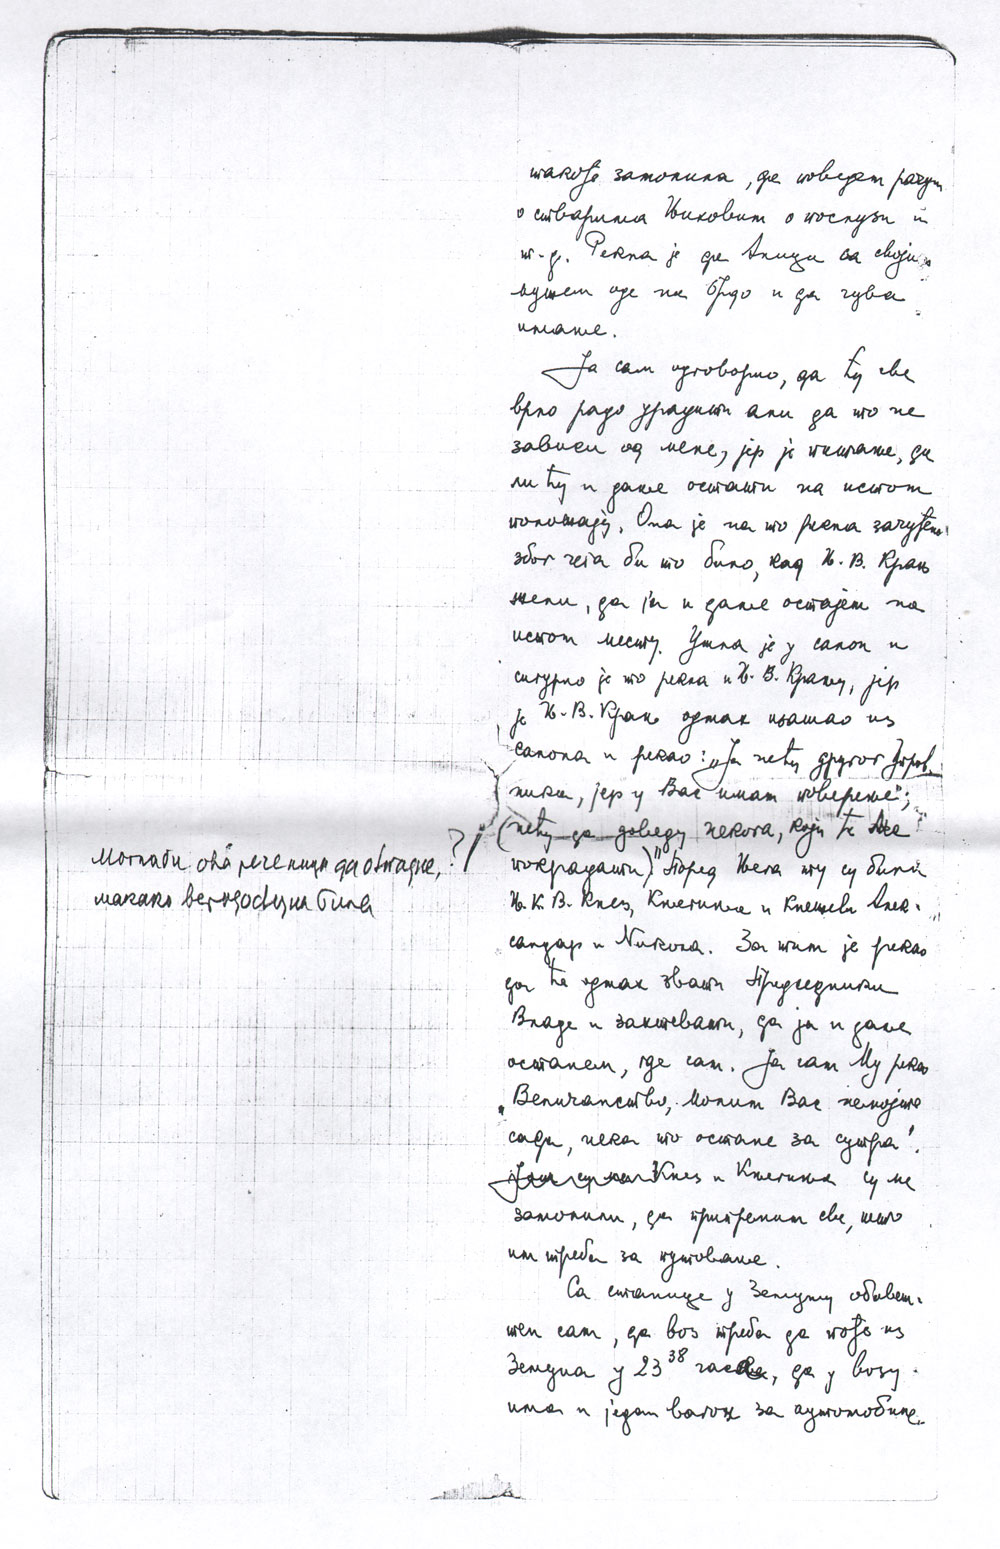 такође замолила, да поведем рачун
о стварима Њиховим о послузи и
т.д. Рекла је да Алиди са својим
мужем оде на Брдо и да чува
имање.
Ја сам одговорио, да ћу све
врло радо урадити али да то не
зависи од мене, јер је питање, да
ли ћу и даље остати на истом
положају. Она је на то рекла зачуђено
због чега би то било, кад Њ. В. Краљ
жели, да ја и даље остајем на
истом месту. Ушла је у салон и
сигурно је то рекла и Њ. В. Краљу, јер
је Њ. В. Краљ одмах изашао из
салона и рекао: „Ја нећу другог Управ-
ника, јер у Вас имам поверење";
(нећу да доведу некога, који ће ме
покрадати)" Поред Њега ту су били
Њ. К. В. Кнез, Кнегиња и Кнежеви Алек-
сандар и Никола. За тим је рекао
да ће одмах звати Председника
Владе и захтевати, да ја и даље
останем, где сам. Ја сам Му рекао
„Величанство, молим Вас немојте
сада, нека то остане за сутра!
Кнез и Кнегиња су ме
замолили, да припремим све, што
им треба за путовање.
Са станице у Земуну обавеш-
тен сам, да воз треба да пође из
Земуна у 23 38 часа, да у возу
има и један вагон за аутомобиле.
Могла би ова реченица да отпадне, ?
макако веродостојна била